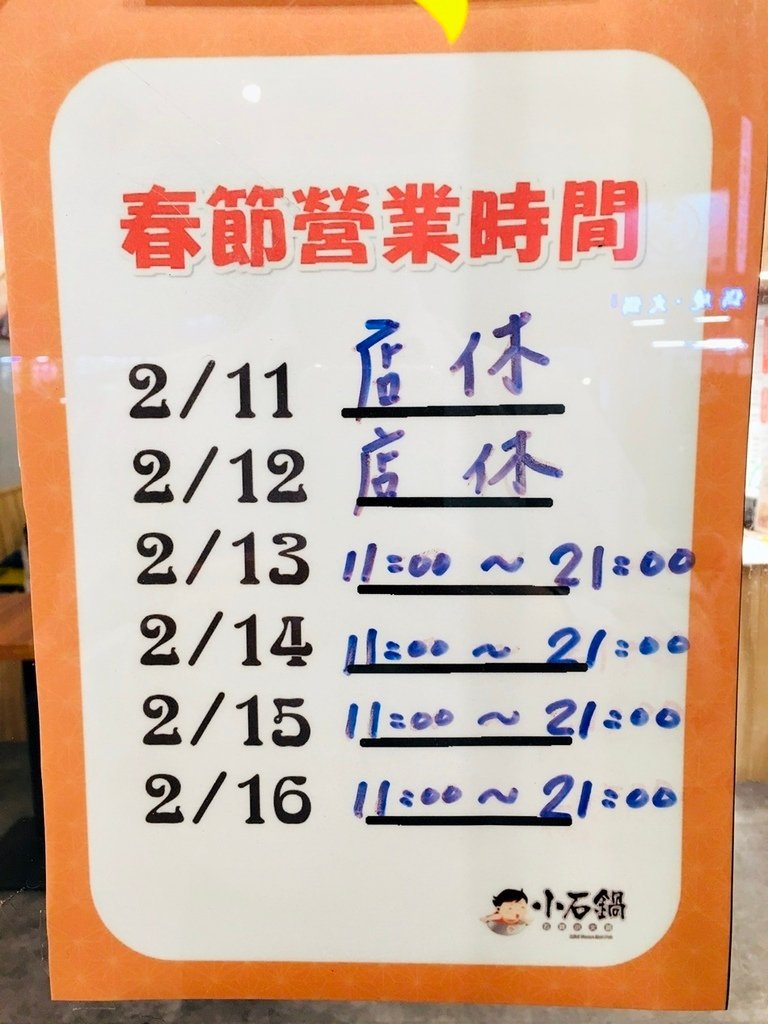 春節營業時間
2/11 店休
2/12 店休
2/13 11:00 ~ 21:00
2/14 11:00 ~ 21:00
2/15 11:00 ~ 21:00
2/16 11:00 ~ 21:00
小石鍋